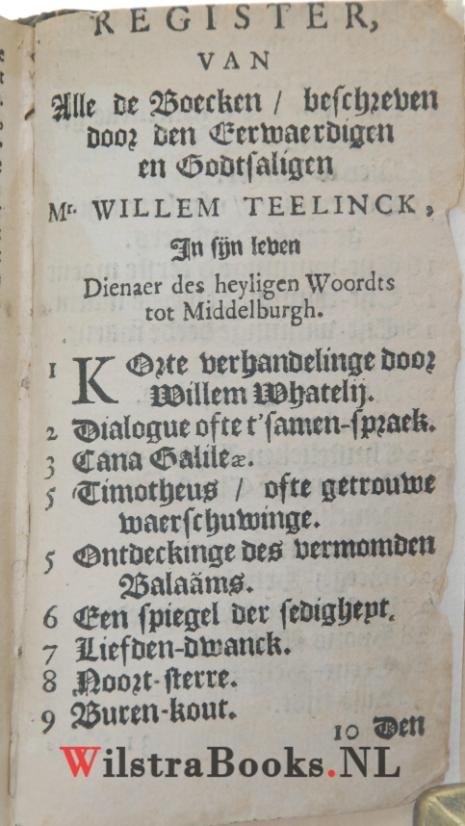 REGISTER,
VAN
Alle de Boecken / beschreven
door den Eerwaerdigen
en Godtsaligen
Mr. WILLEM TEELINCK,
In sijn leven
Dienaer des heyligen Woordts
tot Middelburgh.
1 KOrte verhandelinge door
Willem Whatelij.
2 Dialogue ofte t'samen-spraek.
3 Cana Galileæ.
5 Timotheus / ofte getrouwe
waerschuwinge.
5 Ontdeckinge des vermomden
Balaäms.
6 Een spiegel der sedigheyt.
7 Liefden-dwanck.
8 Noort-sterre.
9 Buren-kout.
10 Den
WilstraBooks.NL